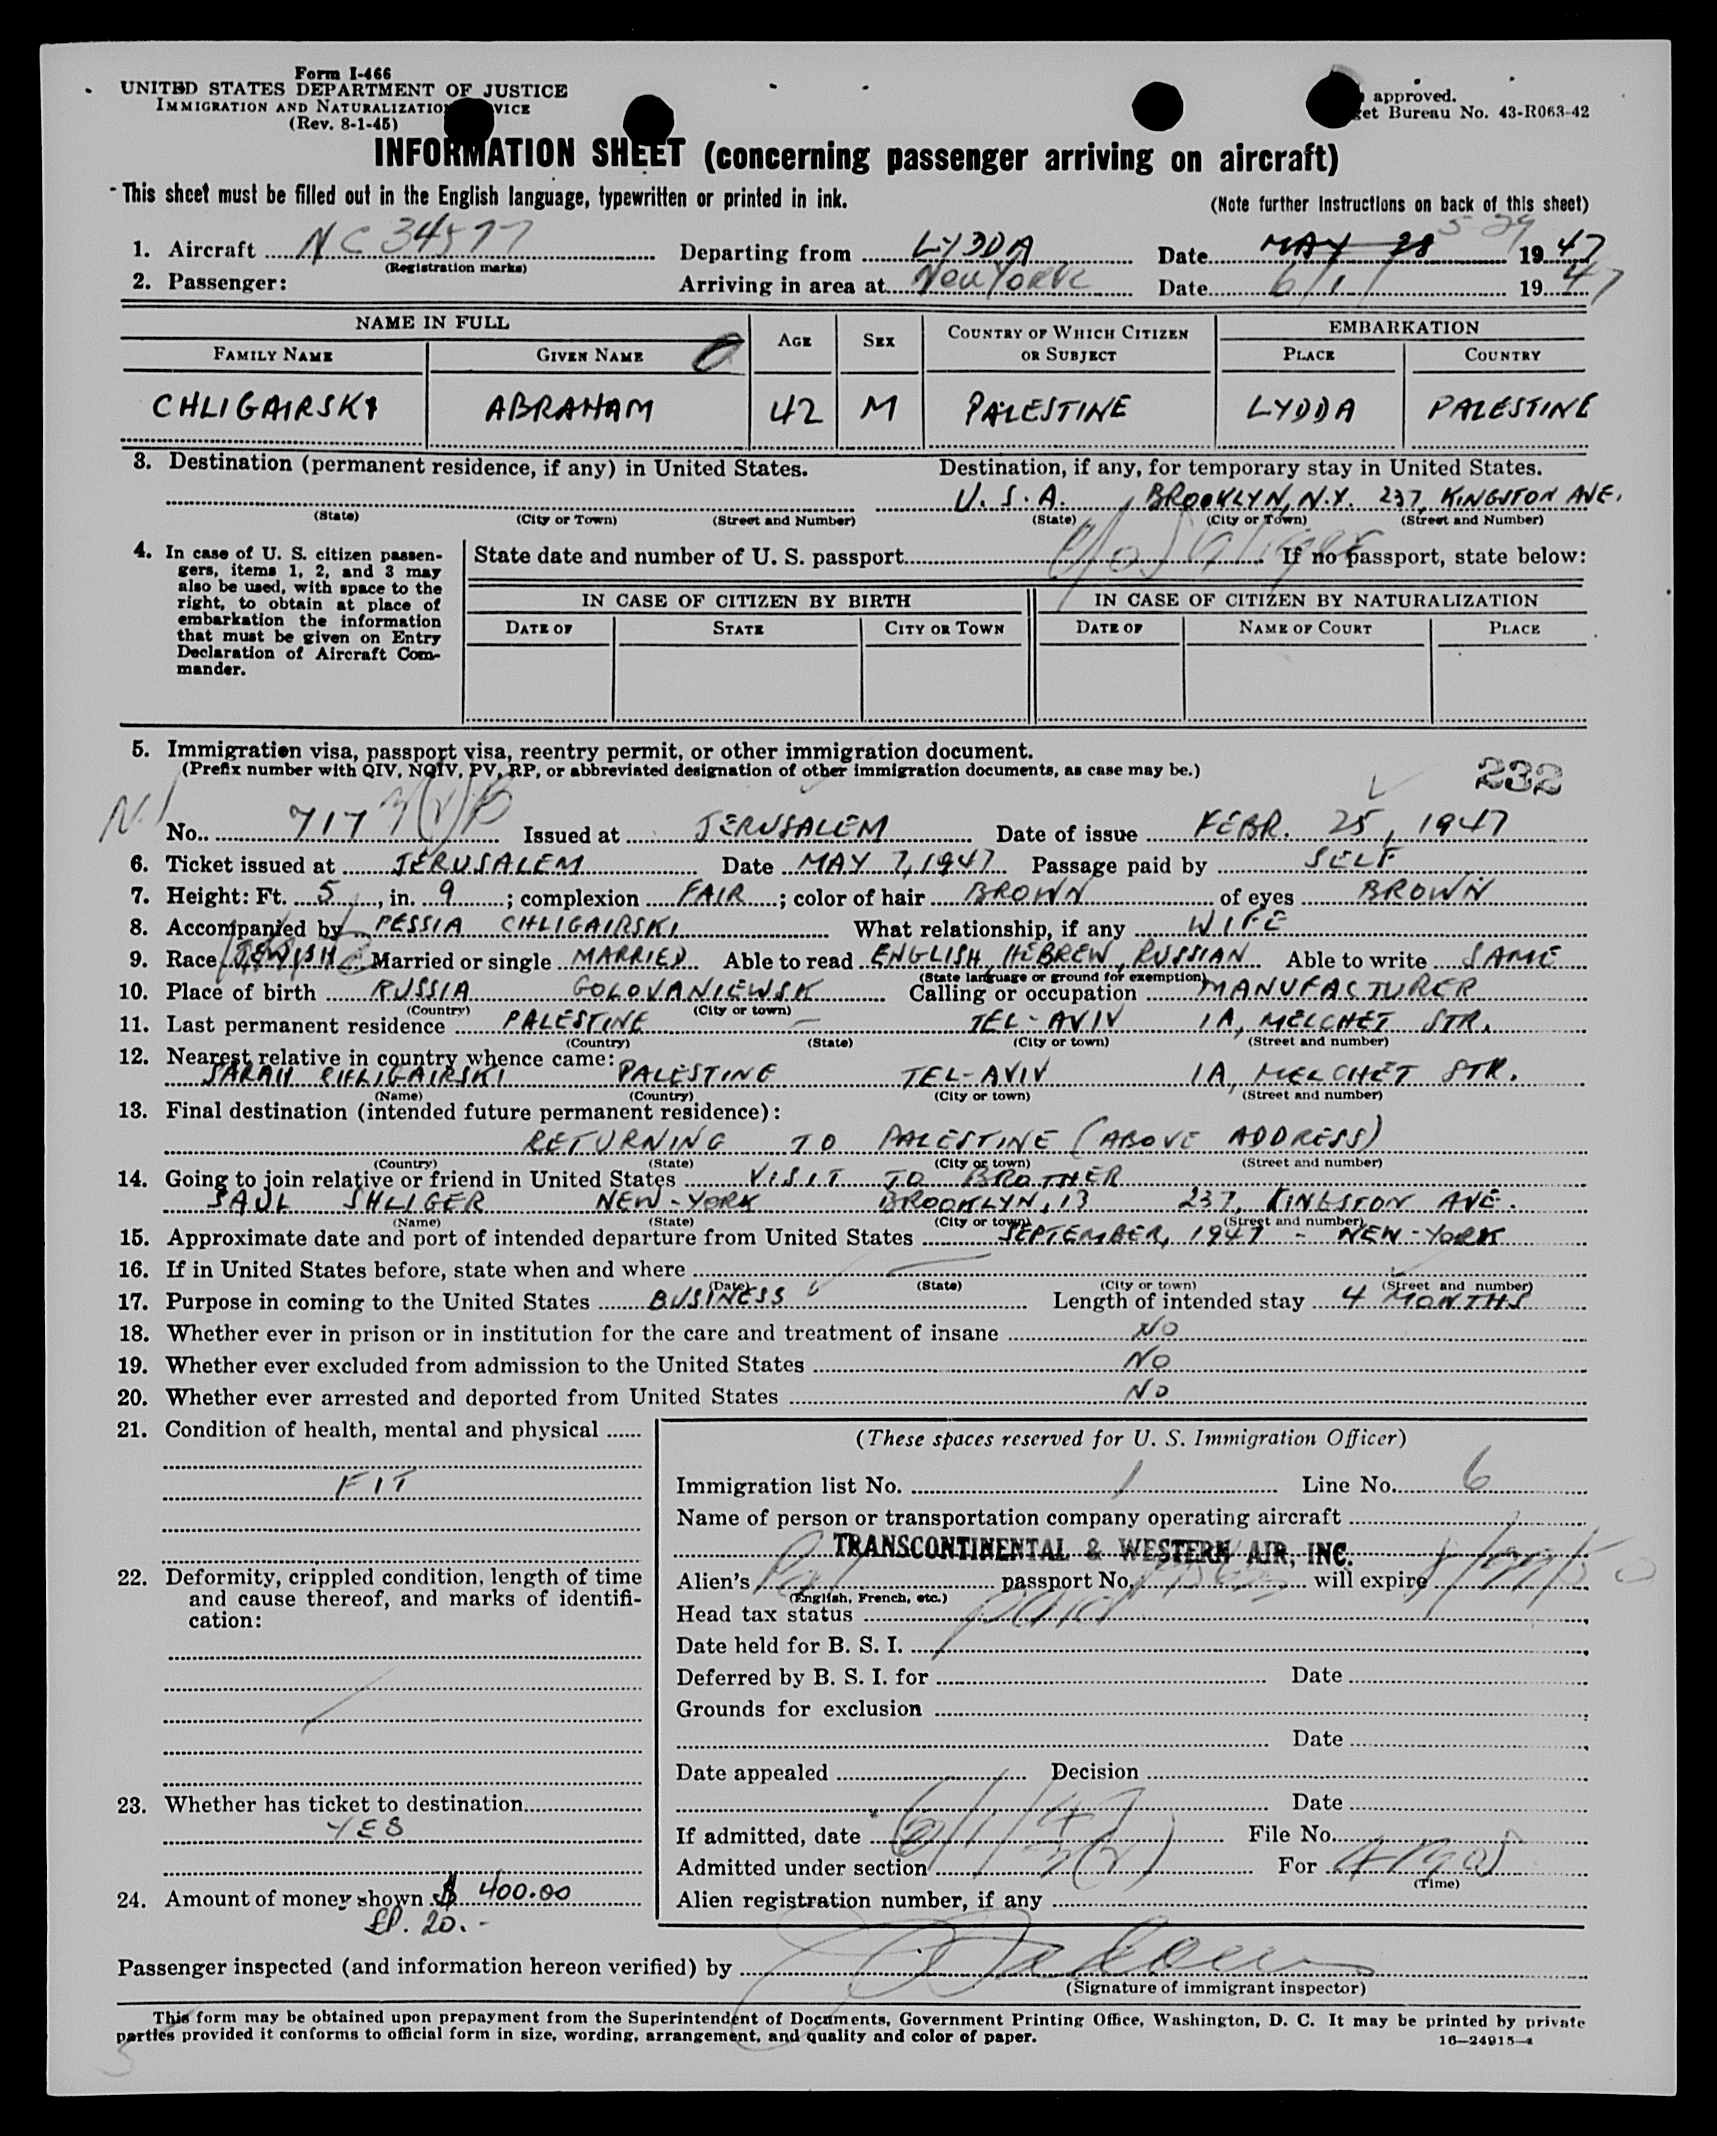 Form I-466
UNITED STATES DEPARTMENT OF JUSTICE
IMMIGRATION AND NATURALIZATION SERVICE
(Rev. 8-1-45)
approved.
Bureau No. 43-R063-42
INFORMATION SHEET (concerning passenger arriving on aircraft)
This sheet must be filled out in the English language, typewritten or printed in ink.
(Note further instructions on back of this sheet)
1. Aircraft NC 34577 Departing from LYDDA Date MAY 28 5-29 1947
(Registration marks)
2. Passenger: Arriving in area at New York Date 6/1/ 1947
NAME IN FULL AGE SEX COUNTRY OF WHICH CITIZEN OR SUBJECT EMBARKATION
FAMILY NAME GIVEN NAME PLACE COUNTRY
CHLIGAIRSKI ABRAHAM 42 M PALESTINE LYDDA PALESTINE
3. Destination (permanent residence, if any) in United States. Destination, if any, for temporary stay in United States.
U.S.A. BROOKLYN, N.Y. 237, KINGSTON AVE.
(State) (City or Town) (Street and Number) (State) (City or Town) (Street and Number)
c/o S Shliger
4. In case of U. S. citizen passengers, items 1, 2, and 3 may also be used, with space to the right, to obtain at place of embarkation the information that must be given on Entry Declaration of Aircraft Commander.
State date and number of U. S. passport If no passport, state below:
IN CASE OF CITIZEN BY BIRTH IN CASE OF CITIZEN BY NATURALIZATION
DATE OF STATE CITY OR TOWN DATE OF NAME OF COURT PLACE
5. Immigration visa, passport visa, reentry permit, or other immigration document.
(Prefix number with QIV, NQIV, PV, RP, or abbreviated designation of other immigration documents, as case may be.)
232
No. 717 3(2)B Issued at JERUSALEM Date of issue FEBR. 25, 1947
6. Ticket issued at JERUSALEM Date MAY 7, 1947 Passage paid by SELF
7. Height: Ft. 5, in. 9; complexion FAIR; color of hair BROWN of eyes BROWN
8. Accompanied by PESSIA CHLIGAIRSKI What relationship, if any WIFE
9. Race JEWISH Married or single MARRIED Able to read ENGLISH, HEBREW, RUSSIAN Able to write SAME
(State language or ground for exemption)
10. Place of birth RUSSIA GOLOVANIEWSK Calling or occupation MANUFACTURER
(Country) (City or town)
11. Last permanent residence PALESTINE — TEL-AVIV 1A, MELCHET STR.
(Country) (State) (City or town) (Street and number)
12. Nearest relative in country whence came:
SARAH CHLIGAIRSKI PALESTINE TEL-AVIV 1A, MELCHET STR.
(Name) (Country) (City or town) (Street and number)
13. Final destination (intended future permanent residence):
RETURNING TO PALESTINE (ABOVE ADDRESS)
(Country) (State) (City or town) (Street and number)
14. Going to join relative or friend in United States VISIT TO BROTHER
SAUL SHLIGER NEW-YORK BROOKLYN, 13 237, KINGSTON AVE.
(Name) (State) (City or town) (Street and number)
15. Approximate date and port of intended departure from United States SEPTEMBER, 1947 - NEW-YORK
16. If in United States before, state when and where —
(Date) (State) (City or town) (Street and number)
17. Purpose in coming to the United States BUSINESS Length of intended stay 4 MONTHS
18. Whether ever in prison or in institution for the care and treatment of insane NO
19. Whether ever excluded from admission to the United States NO
20. Whether ever arrested and deported from United States NO
21. Condition of health, mental and physical
FIT
22. Deformity, crippled condition, length of time and cause thereof, and marks of identification:
23. Whether has ticket to destination
YES
24. Amount of money shown $ 400.00
£P. 20.-
(These spaces reserved for U. S. Immigration Officer)
Immigration list No. 1 Line No. 6
Name of person or transportation company operating aircraft
TRANSCONTINENTAL & WESTERN AIR, INC.
Alien's Pal passport No. will expire
(English, French, etc.)
Head tax status paid
Date held for B. S. I.
Deferred by B. S. I. for Date
Grounds for exclusion
Date
Date appealed Decision
Date
If admitted, date 6/1/47 File No.
Admitted under section 3(2) For 4 mos
(Time)
Alien registration number, if any
Passenger inspected (and information hereon verified) by
(Signature of immigrant inspector)
This form may be obtained upon prepayment from the Superintendent of Documents, Government Printing Office, Washington, D. C. It may be printed by private
parties provided it conforms to official form in size, wording, arrangement, and quality and color of paper.
16—24915-1